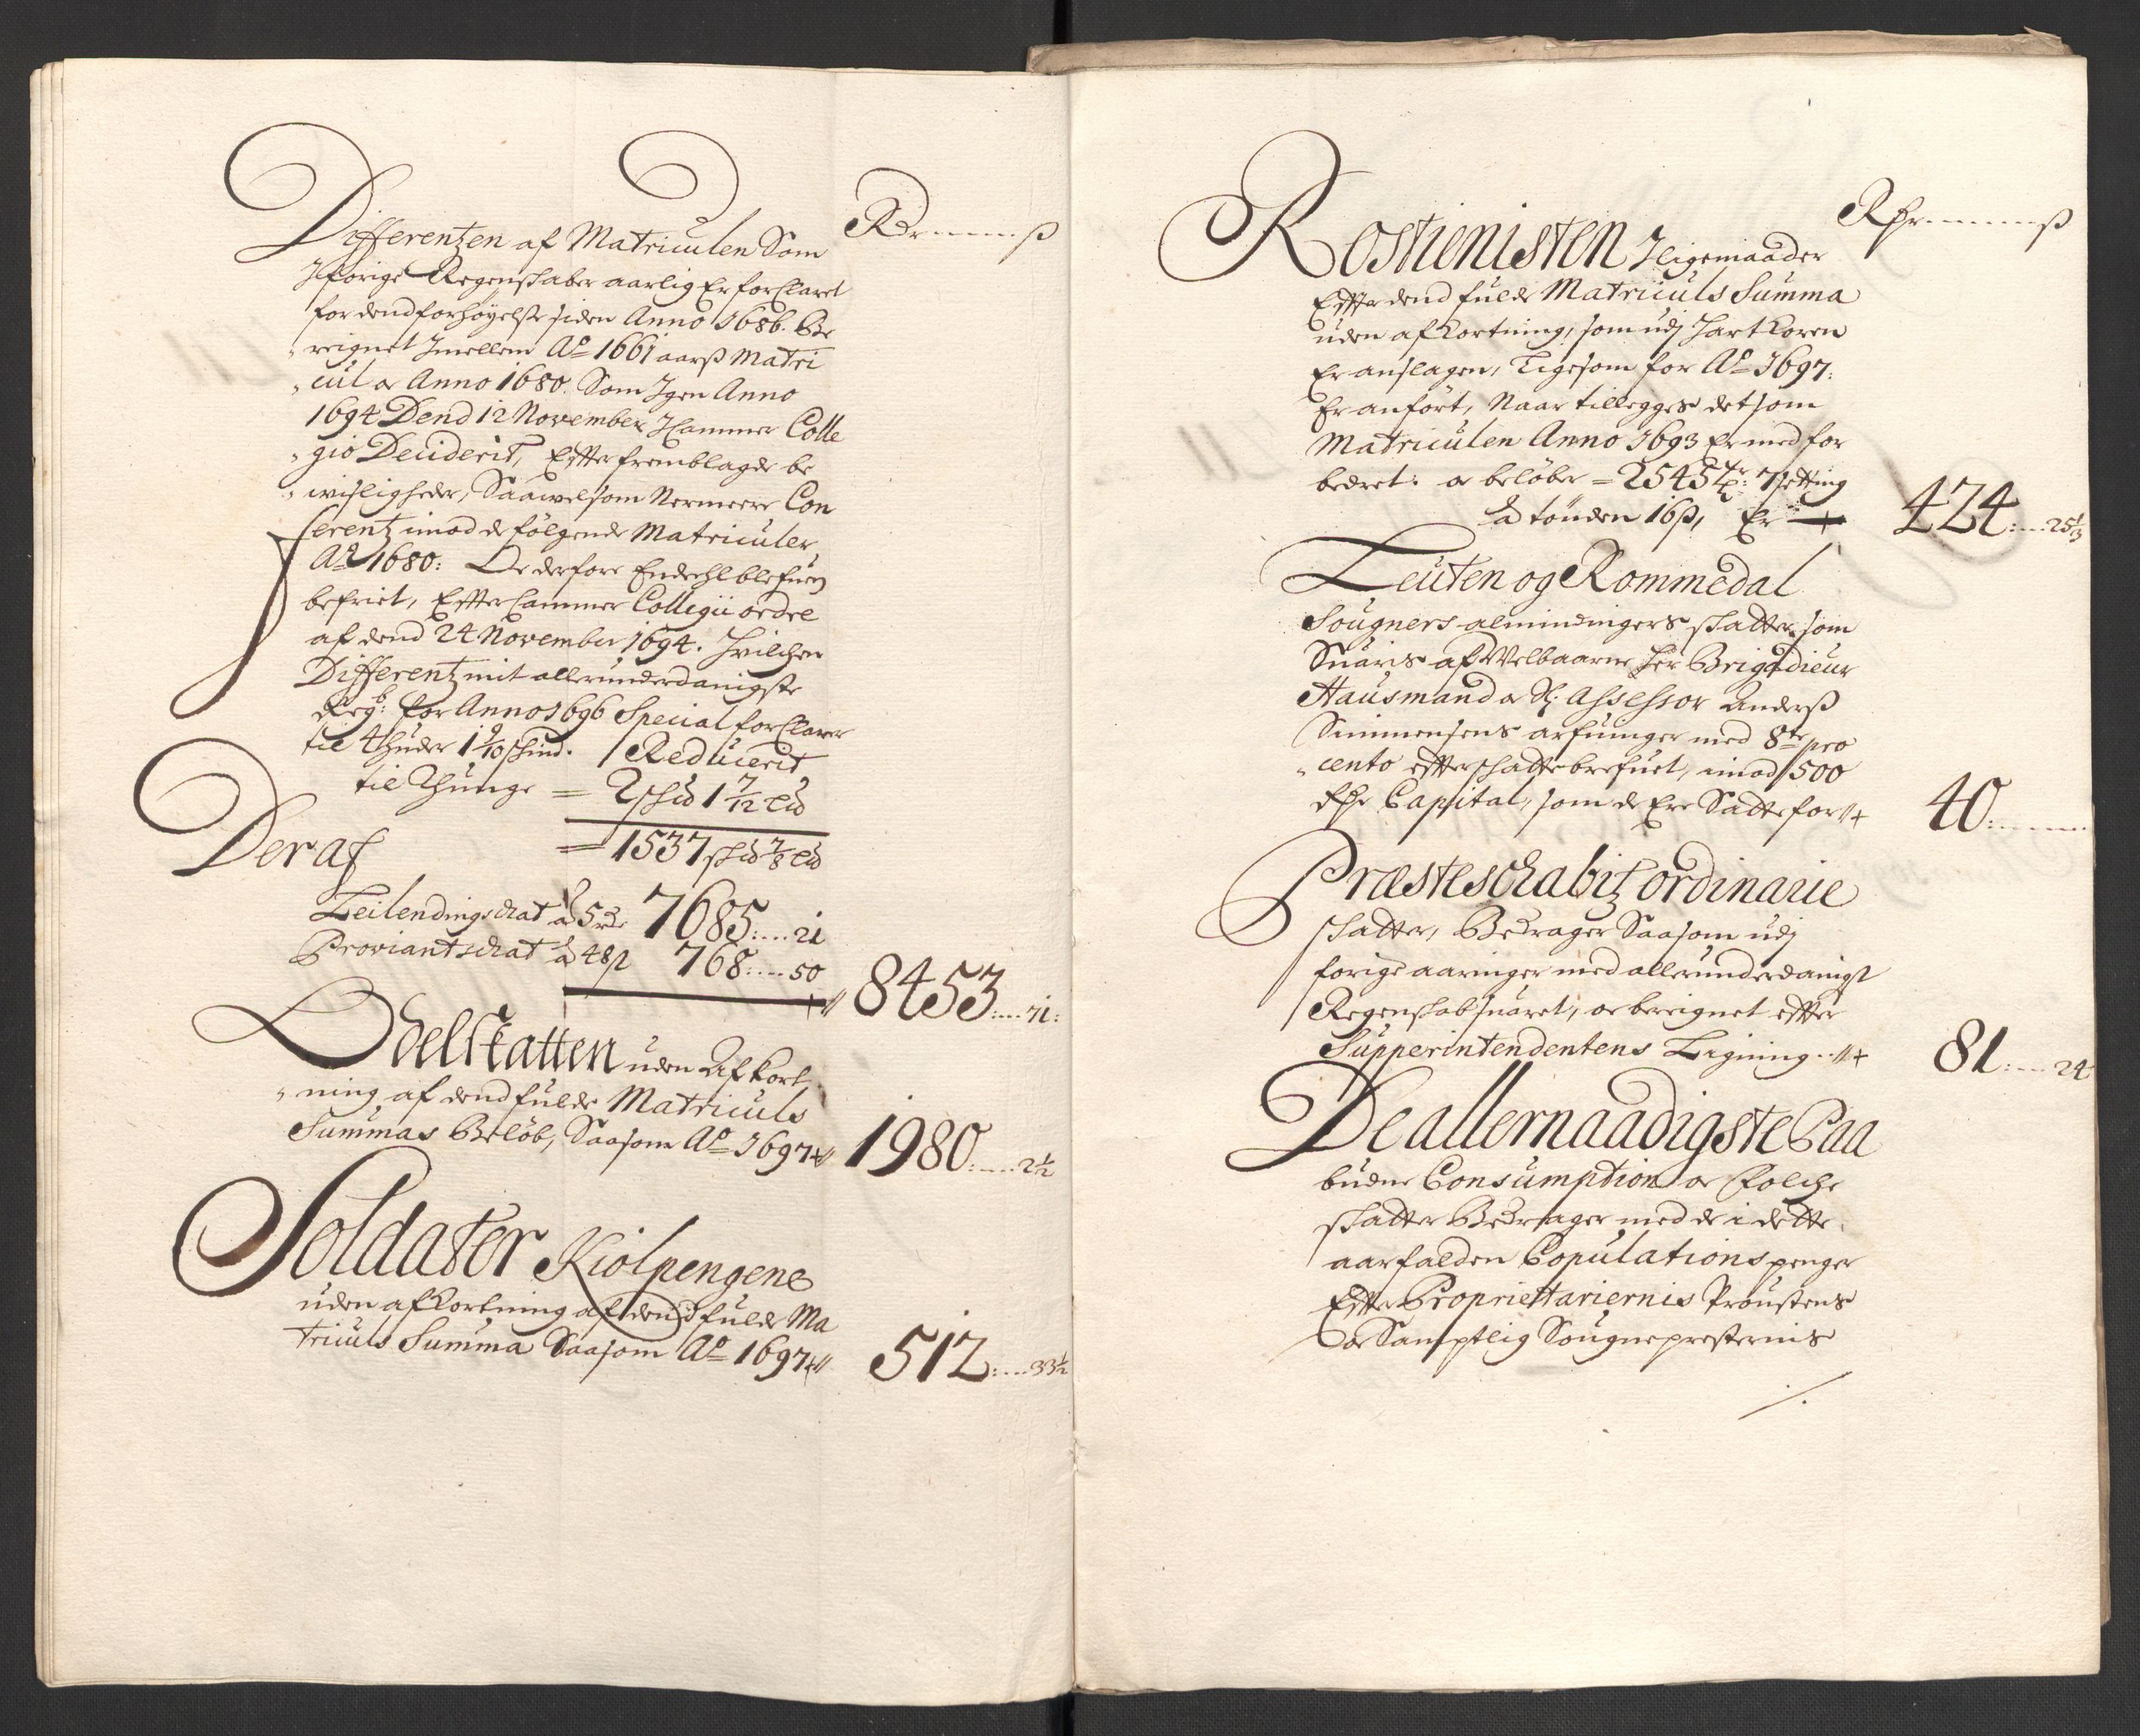 Rdr ß
Differentzen af Matriculen Som
Jforige Regenskaber aarlig Er forklaret
for dend forhöyelse siden Anno 1686. Be
reignet Jmellem Ao 1661 aarß Matri
cul oc Anno 1680. Som Jgen Anno
1694 Dend 12 November J Cammer Colle
gio Deciderit, Efter fremblagde be
wisligheder, Saawelsom Nermeere Con
ferentz imod de fölgende Matriculer
Ao 1680: Oc derfore Endeehl blefuen
befriet, Efter Cammer Collegii ordre
af dend 24 November 1694. Hvilchen
Differentz mit allerunderdanigste
Regb: for Anno 1696 Special forklarer
til 4 huder 1 9/10 skind. Reducerit
til Thunge = 2 skid 1 7/12 Lid
Deraf = 1537 skid 7/8 Lid
Leilendingschat à 5 rdr 7685:....21
Proviantschat à 48 β 768:....50
8453:....71:
Odelskatten uden Afkort
ning af dend fulde Matriculs
Summas Belöb, Saasom Ao 1697 1980:....2½
Soldater Kiolpengene
uden afkortning af dend fulde Ma
triculs Summa Saasom Ao 1697 512:....33½
Rdr ß
Rostienisten J ligemaader
Effter dend fulde Matriculs Summa
uden afkortning, som udj Hartkoren
Er anslagen, Ligesom for Ao 1697:
Er anfört, Naar tillegges det som
Matriculen Anno 1693 Er med for
bedret: oc beløber = 2545 Tr: 7 setting
à tönden 16 β, Er 424:....25⅓
Leuten og Rommedal
Sougners almindingers skatter som
Suaris af Welbaarne Her Brigadieur
Hausmand oc Sl: Assessor Anderß
Simmensens arfuinger med 8te pro
cento efter skattebrefuet, imod 500
Rdr Capital, som de Ere Satte for 40:....
Præsteschabitz ordinarie
skatter, Bedrager Saasom udj
forige aaringer med allerunderdanigst
Regenskab suaret, oc bereignet effter
Supperintendentens Ligning. 81:....24
De allernaadigste Paa
budne Consumption oc Folche
skatter Bedrager med de i dette
aar falden Copulations penger
Efter Proprietariernis Proustens
oc Samptlig Sougnepresternis